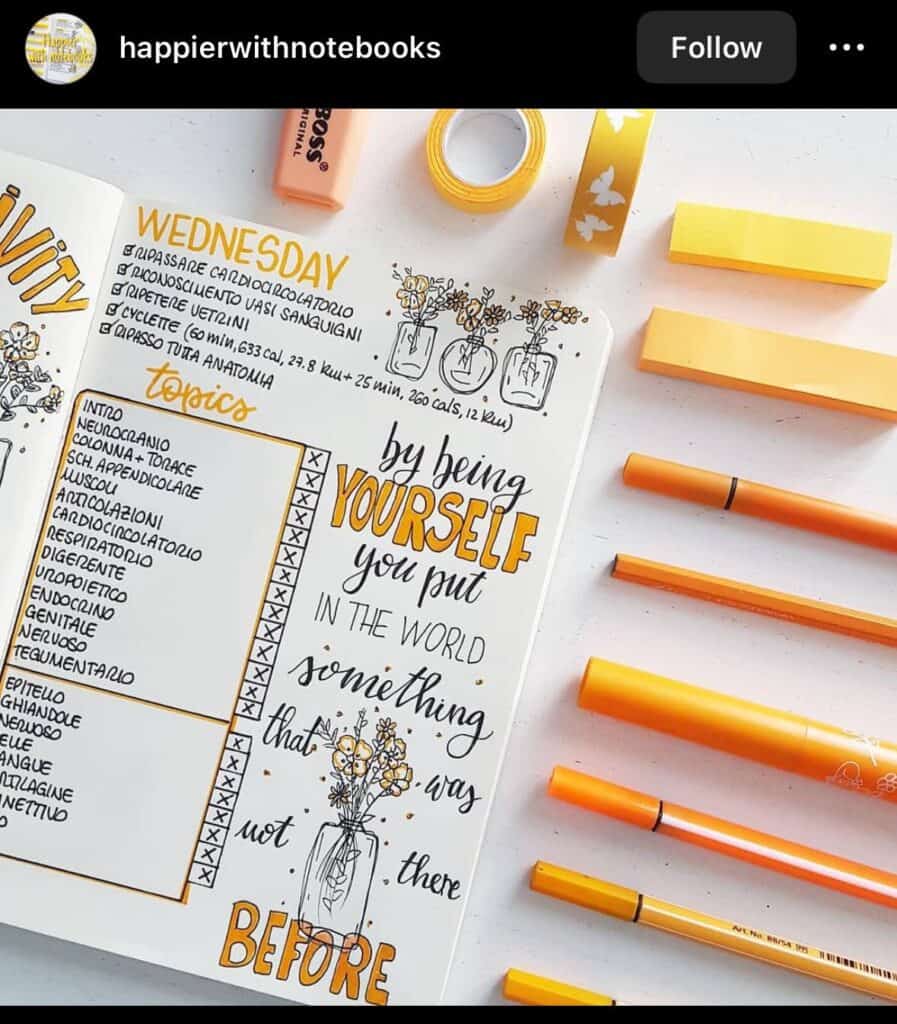 happierwithnotebooks
Follow
Happier
with notebooks
BOSS
ORIGINAL
WEDNESDAY
RIPASSARE CARDIOCIRCOLATORIO
RICONOSCIMENTO VASI SANGUIGNI
RIPETERE VETRINI
CYCLETTE (60 min, 633 cal, 27.8 km + 25 min, 260 cals, 12 km)
RIPASSO TUTTA ANATOMIA
topics
INTRO
NEUROCRANIO
COLONNA + TORACE
SCH. APPENDICOLARE
MUSCOLI
ARTICOLAZIONI
CARDIOCIRCOLATORIO
RESPIRATORIO
DIGERENTE
UROPOIETICO
ENDOCRINO
GENITALE
NERVOSO
TEGUMENTARIO
EPITELIO
GHIANDOLE
NERVOSO
ELLE
ANGUE
RTILAGINE
NNETTIVO
O
by being
YOURSELF
you put
IN THE WORLD
something
that was
not there
BEFORE
iViTY
Art. No. 88/54